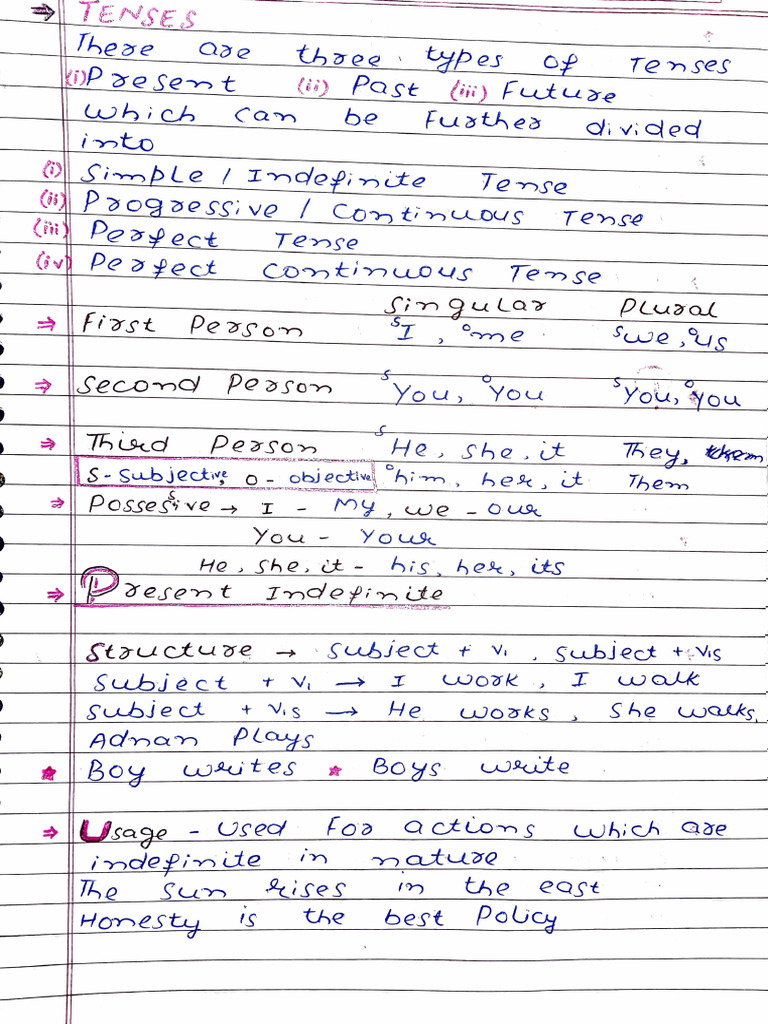 ⇒ TENSES
There are three types of Tenses
(i) Present (ii) Past (iii) Future
which can be further divided
into
(i) Simple / Indefinite Tense
(ii) Progressive / continuous Tense
(iii) Perfect Tense
(iv) Perfect continuous Tense
Singular Plural
⇒ First Person S I , O me S we, O us
⇒ Second Person S You, O You S You, O You
⇒ Third Person S He, she, it They, them
S - subjective, O - objective O him, her, it Them
⇒ Possesive s → I - My, we - our
You - Your
He, she, it - his, her, its
⇒ Present Indefinite
Structure → Subject + V1 , Subject + V1s
Subject + V1 → I work, I walk
Subject + V1s → He works, She walks,
Adnan Plays
★ Boy writes ★ Boys write
⇒ Usage - Used for actions which are
indefinite in nature
The sun rises in the east
Honesty is the best Policy